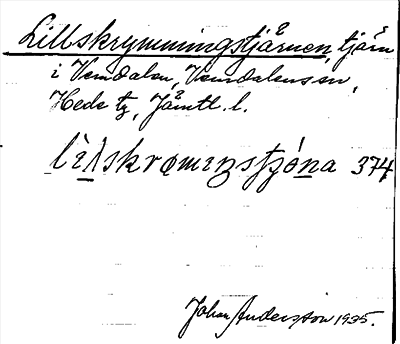 Lillskrymmningstjärnen, tjärn
i Vemdalen, Vemdalens sn,
Hede tg, Jämtl. l.
lìlskrømiŋstjó̱na 374
Johan Andersson 1935.